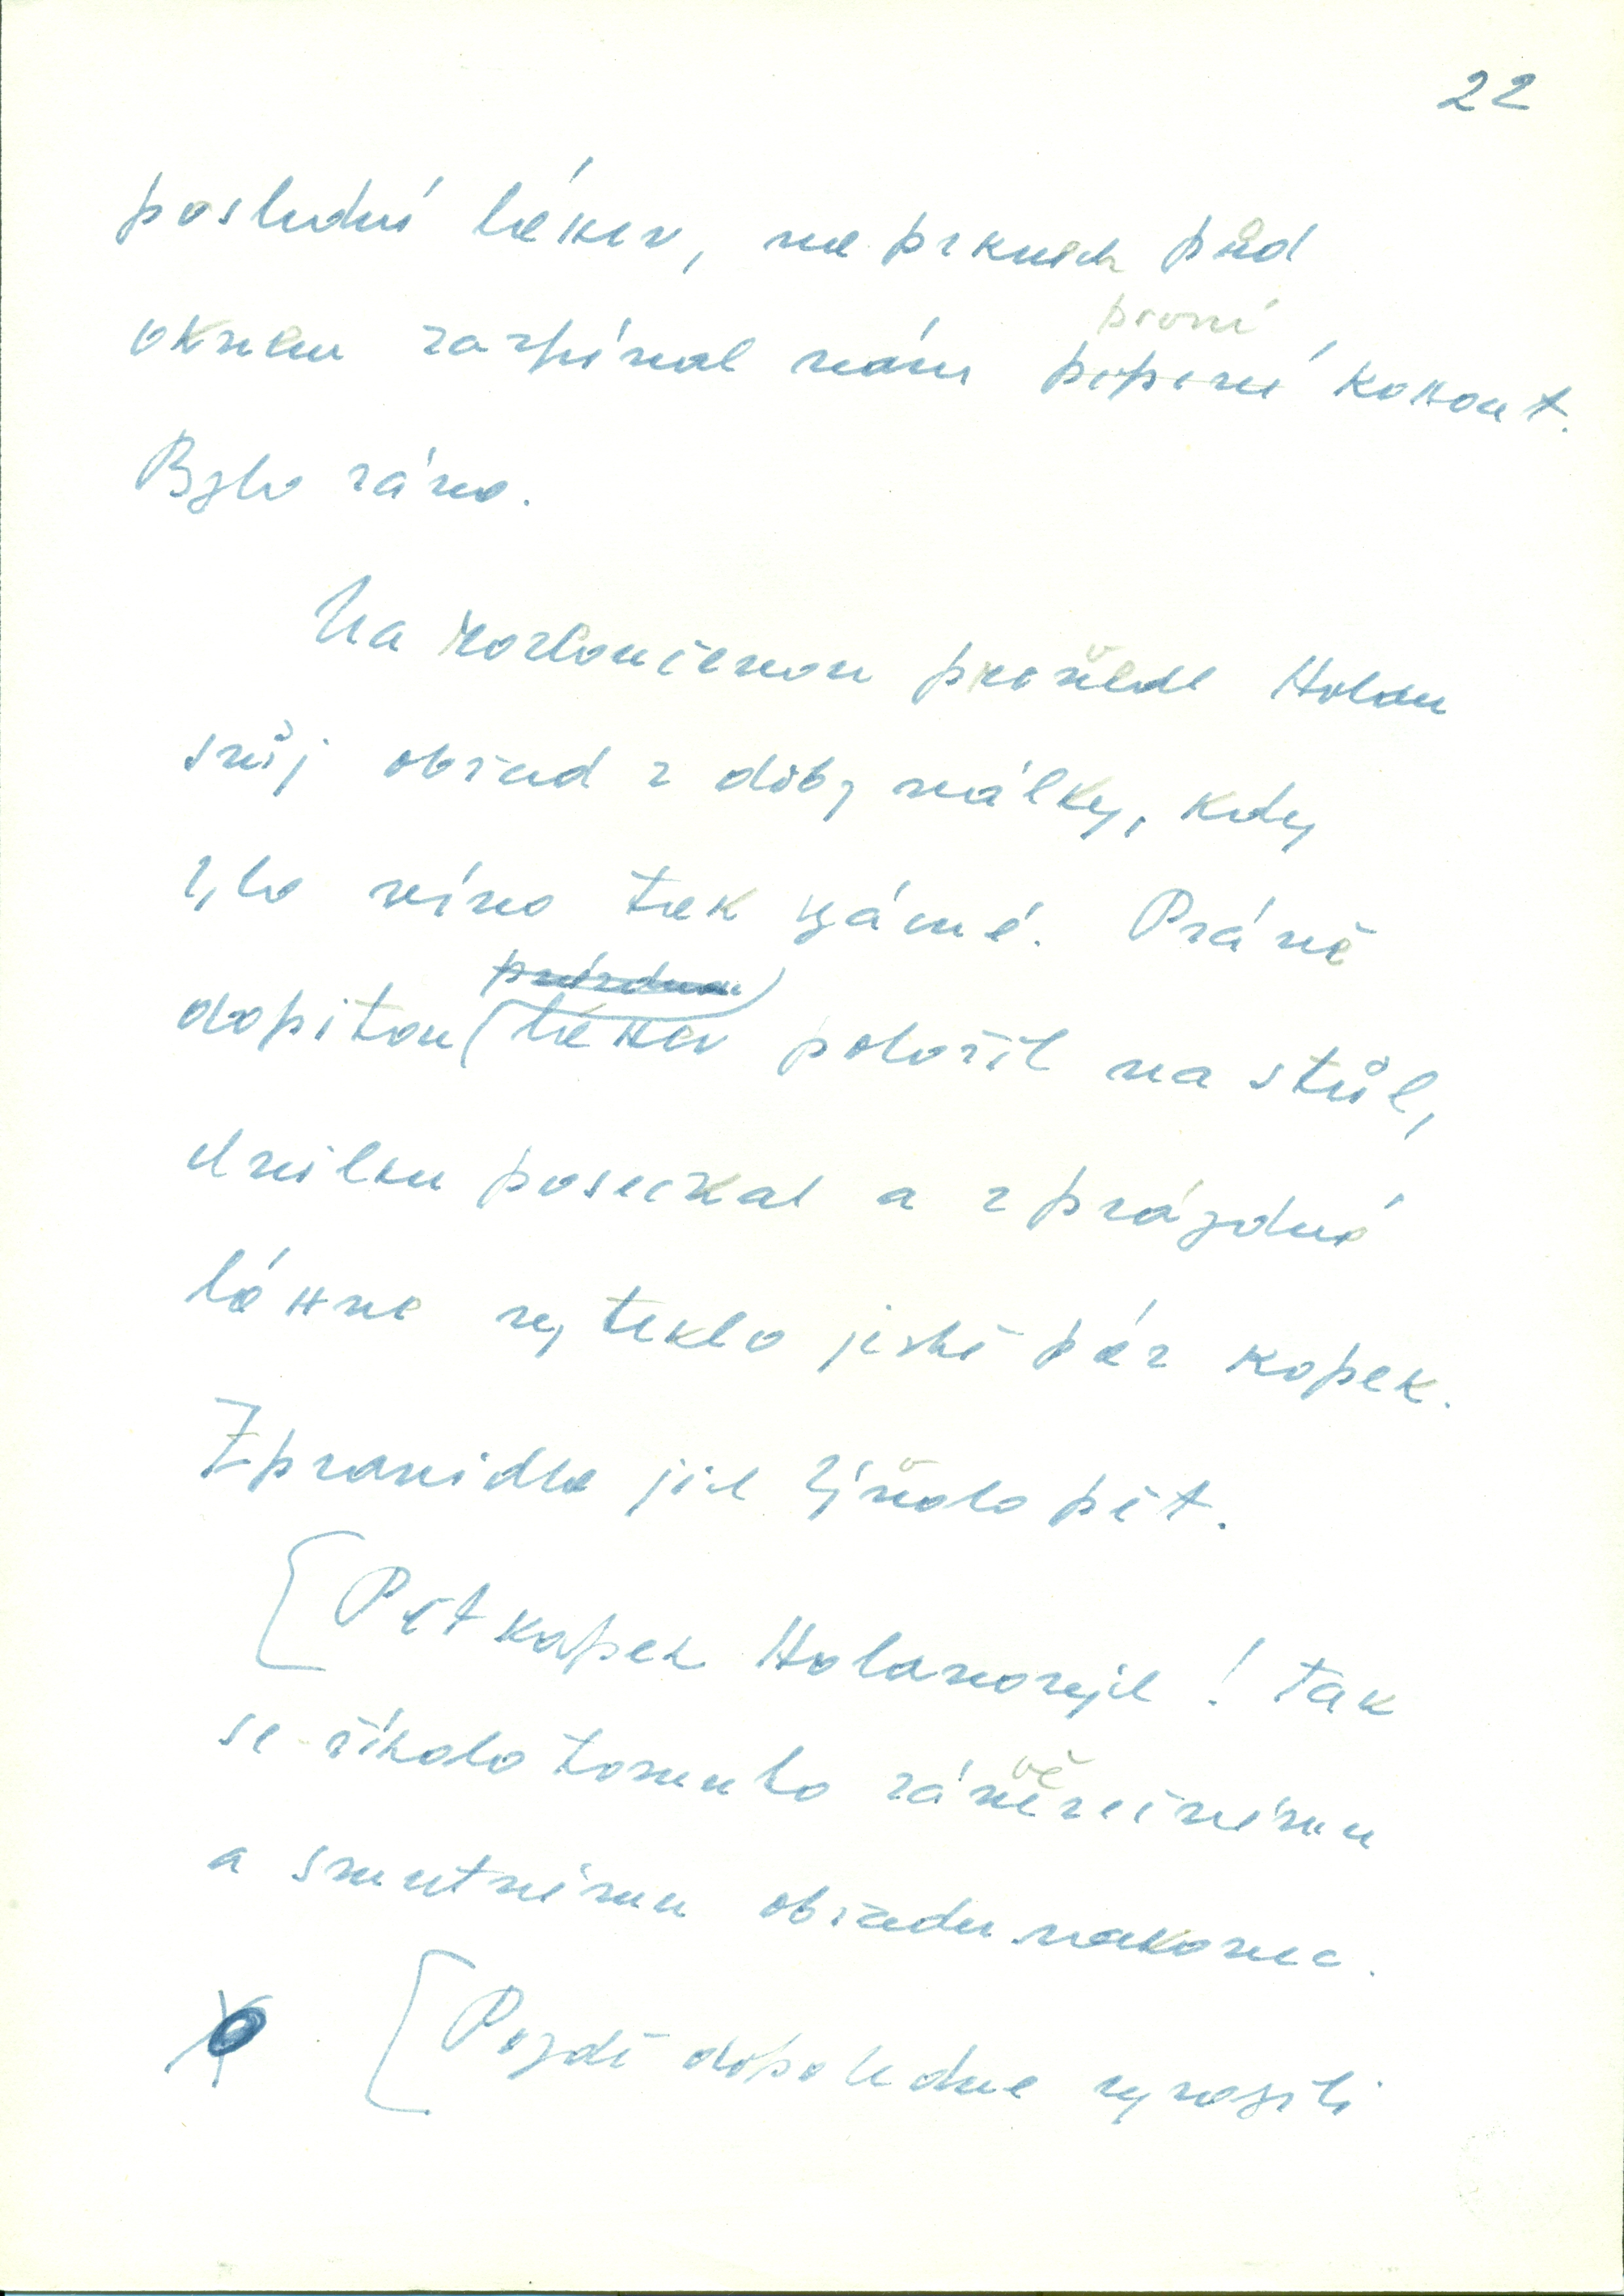 22
poslední láhev, na prknech před
první
oknem zazpíval nám poprvé kohout.
Bylo ráno.
Na rozloučenou provedl Holan
svůj obřad z doby války, kdy
bylo víno tak vzácné. Právě
prázdnou
dopitou láhev položil na stůl,
chvilku posečkal a z prázdné
láhve vyteklo ještě pár kapek.
Zpravidla jich bývalo pět.
Pět kapek Holanových! Tak
se říkalo tomuto závěrečnému
a smutnému obřadu nakonec.
Pozdě dopoledne vyrazili